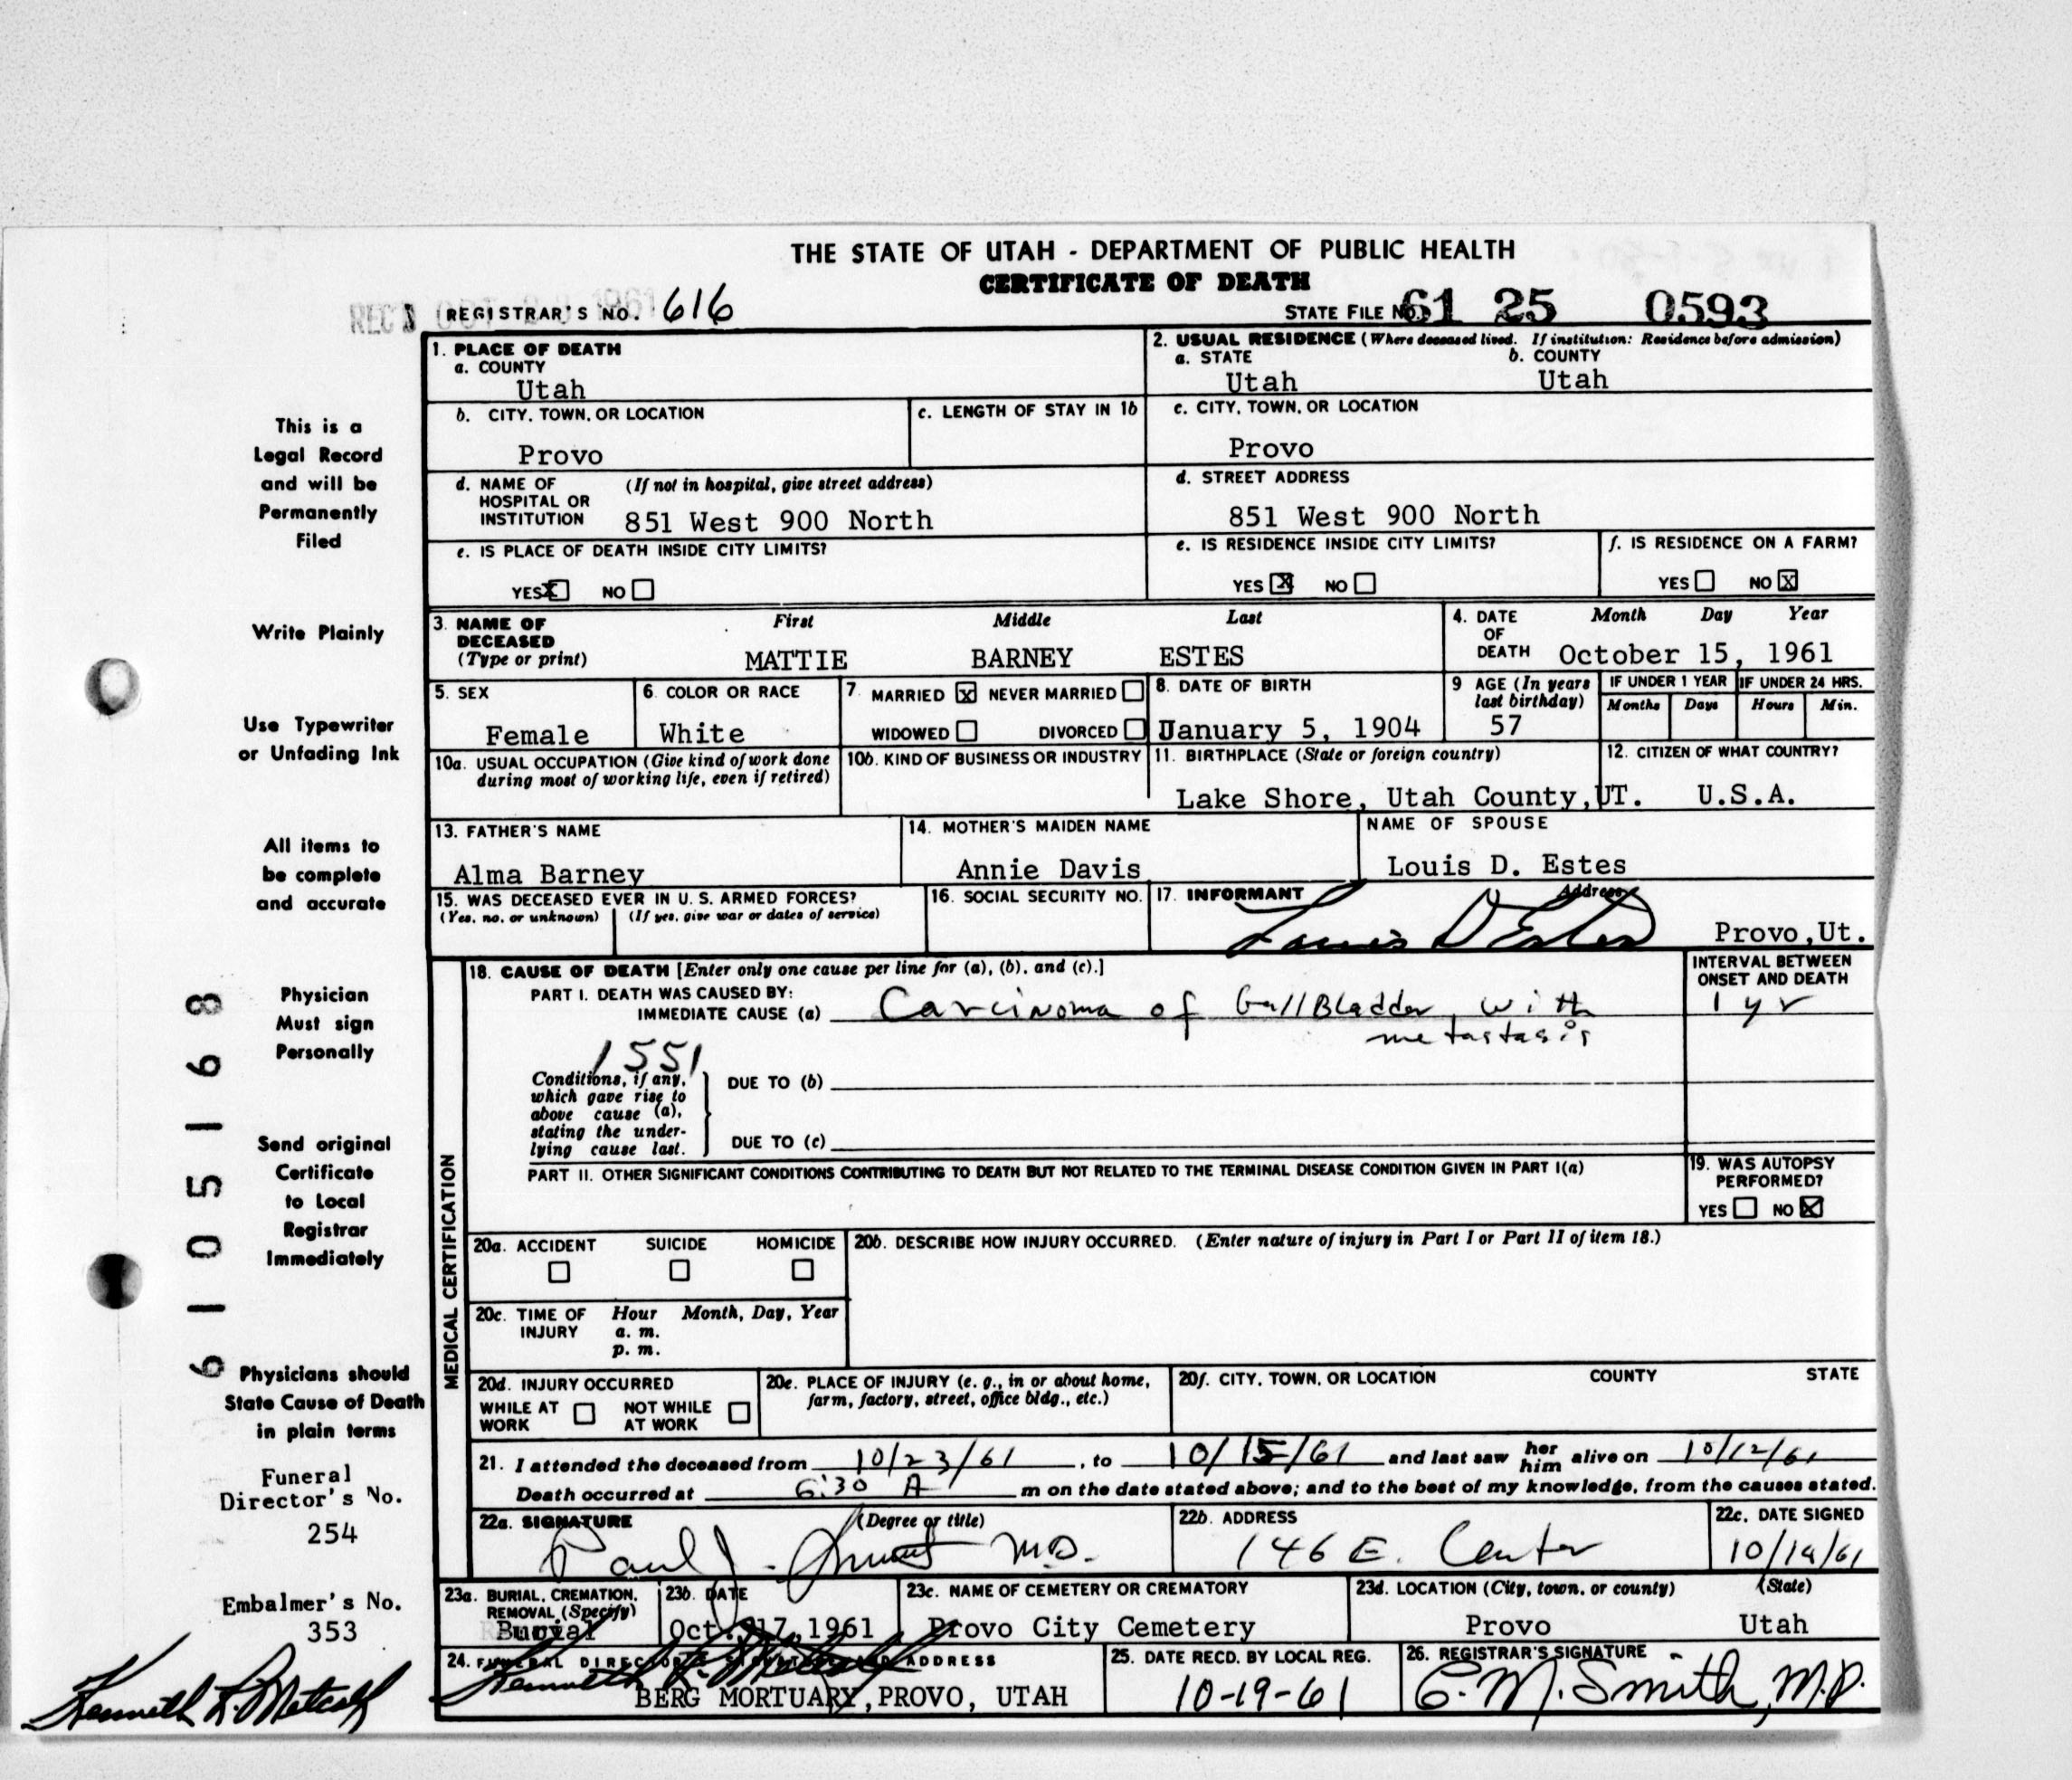 THE STATE OF UTAH - DEPARTMENT OF PUBLIC HEALTH
CERTIFICATE OF DEATH
REC'D OCT 1961
REGISTRAR'S NO. 616
STATE FILE NO. 61 25 0593
1. PLACE OF DEATH
a. COUNTY
Utah
2. USUAL RESIDENCE (Where deceased lived. If institution: Residence before admission)
a. STATE b. COUNTY
Utah Utah
b. CITY, TOWN, OR LOCATION
Provo
c. LENGTH OF STAY IN 1b
c. CITY, TOWN, OR LOCATION
Provo
d. NAME OF HOSPITAL OR INSTITUTION (If not in hospital, give street address)
851 West 900 North
d. STREET ADDRESS
851 West 900 North
e. IS PLACE OF DEATH INSIDE CITY LIMITS?
YES X NO
e. IS RESIDENCE INSIDE CITY LIMITS?
YES X NO
f. IS RESIDENCE ON A FARM?
YES NO X
3. NAME OF DECEASED (Type or print)
First Middle Last
MATTIE BARNEY ESTES
4. DATE OF DEATH Month Day Year
October 15, 1961
5. SEX
Female
6. COLOR OR RACE
White
7. MARRIED X NEVER MARRIED
WIDOWED DIVORCED
8. DATE OF BIRTH
January 5, 1904
9 AGE (In years last birthday)
57
IF UNDER 1 YEAR
Months Days
IF UNDER 24 HRS.
Hours Min.
10a. USUAL OCCUPATION (Give kind of work done during most of working life, even if retired)
10b. KIND OF BUSINESS OR INDUSTRY
11. BIRTHPLACE (State or foreign country)
Lake Shore, Utah County, UT.
12. CITIZEN OF WHAT COUNTRY?
U.S.A.
13. FATHER'S NAME
Alma Barney
14. MOTHER'S MAIDEN NAME
Annie Davis
NAME OF SPOUSE
Louis D. Estes
15. WAS DECEASED EVER IN U. S. ARMED FORCES?
(Yes, no, or unknown) (If yes, give war or dates of service)
16. SOCIAL SECURITY NO.
17. INFORMANT Address
Louis D Estes Provo, Ut.
MEDICAL CERTIFICATION
18. CAUSE OF DEATH [Enter only one cause per line for (a), (b), and (c).]
PART I. DEATH WAS CAUSED BY:
IMMEDIATE CAUSE (a) Carcinoma of GallBladder, with
metastasis
INTERVAL BETWEEN ONSET AND DEATH
1 yr
1551
Conditions, if any,
which gave rise to
above cause (a),
stating the under-
lying cause last.
DUE TO (b)
DUE TO (c)
PART II. OTHER SIGNIFICANT CONDITIONS CONTRIBUTING TO DEATH BUT NOT RELATED TO THE TERMINAL DISEASE CONDITION GIVEN IN PART I(a)
19. WAS AUTOPSY PERFORMED?
YES NO X
20a. ACCIDENT SUICIDE HOMICIDE
20b. DESCRIBE HOW INJURY OCCURRED. (Enter nature of injury in Part I or Part II of item 18.)
20c. TIME OF INJURY Hour Month, Day, Year
a. m.
p. m.
20d. INJURY OCCURRED
WHILE AT WORK NOT WHILE AT WORK
20e. PLACE OF INJURY (e. g., in or about home, farm, factory, street, office bldg., etc.)
20f. CITY, TOWN, OR LOCATION COUNTY STATE
21. I attended the deceased from 10/23/61, to 10/15/61 and last saw her him alive on 10/12/61
Death occurred at 6:30 A m on the date stated above; and to the best of my knowledge, from the causes stated.
22a. SIGNATURE (Degree or title)
Paul J. M.D.
22b. ADDRESS
146 E. Center
22c. DATE SIGNED
23a. BURIAL, CREMATION, REMOVAL (Specify)
Burial
23b. DATE
Oct. 17, 1961
23c. NAME OF CEMETERY OR CREMATORY
Provo City Cemetery
23d. LOCATION (City, town, or county) (State)
Provo Utah
24. FUNERAL DIRECTOR'S SIGNATURE AND ADDRESS
BERG MORTUARY, PROVO, UTAH
25. DATE RECD. BY LOCAL REG.
10-19-61
26. REGISTRAR'S SIGNATURE
C. M. Smith, M.D.
This is a
Legal Record
and will be
Permanently
Filed
Write Plainly
Use Typewriter
or Unfading Ink
All items to
be complete
and accurate
Physician
Must sign
Personally
Send original
Certificate
to Local
Registrar
Immediately
Physicians should
State Cause of Death
in plain terms
Funeral
Director's No.
254
Embalmer's No.
353
Kenneth L. Metcalf
6105168